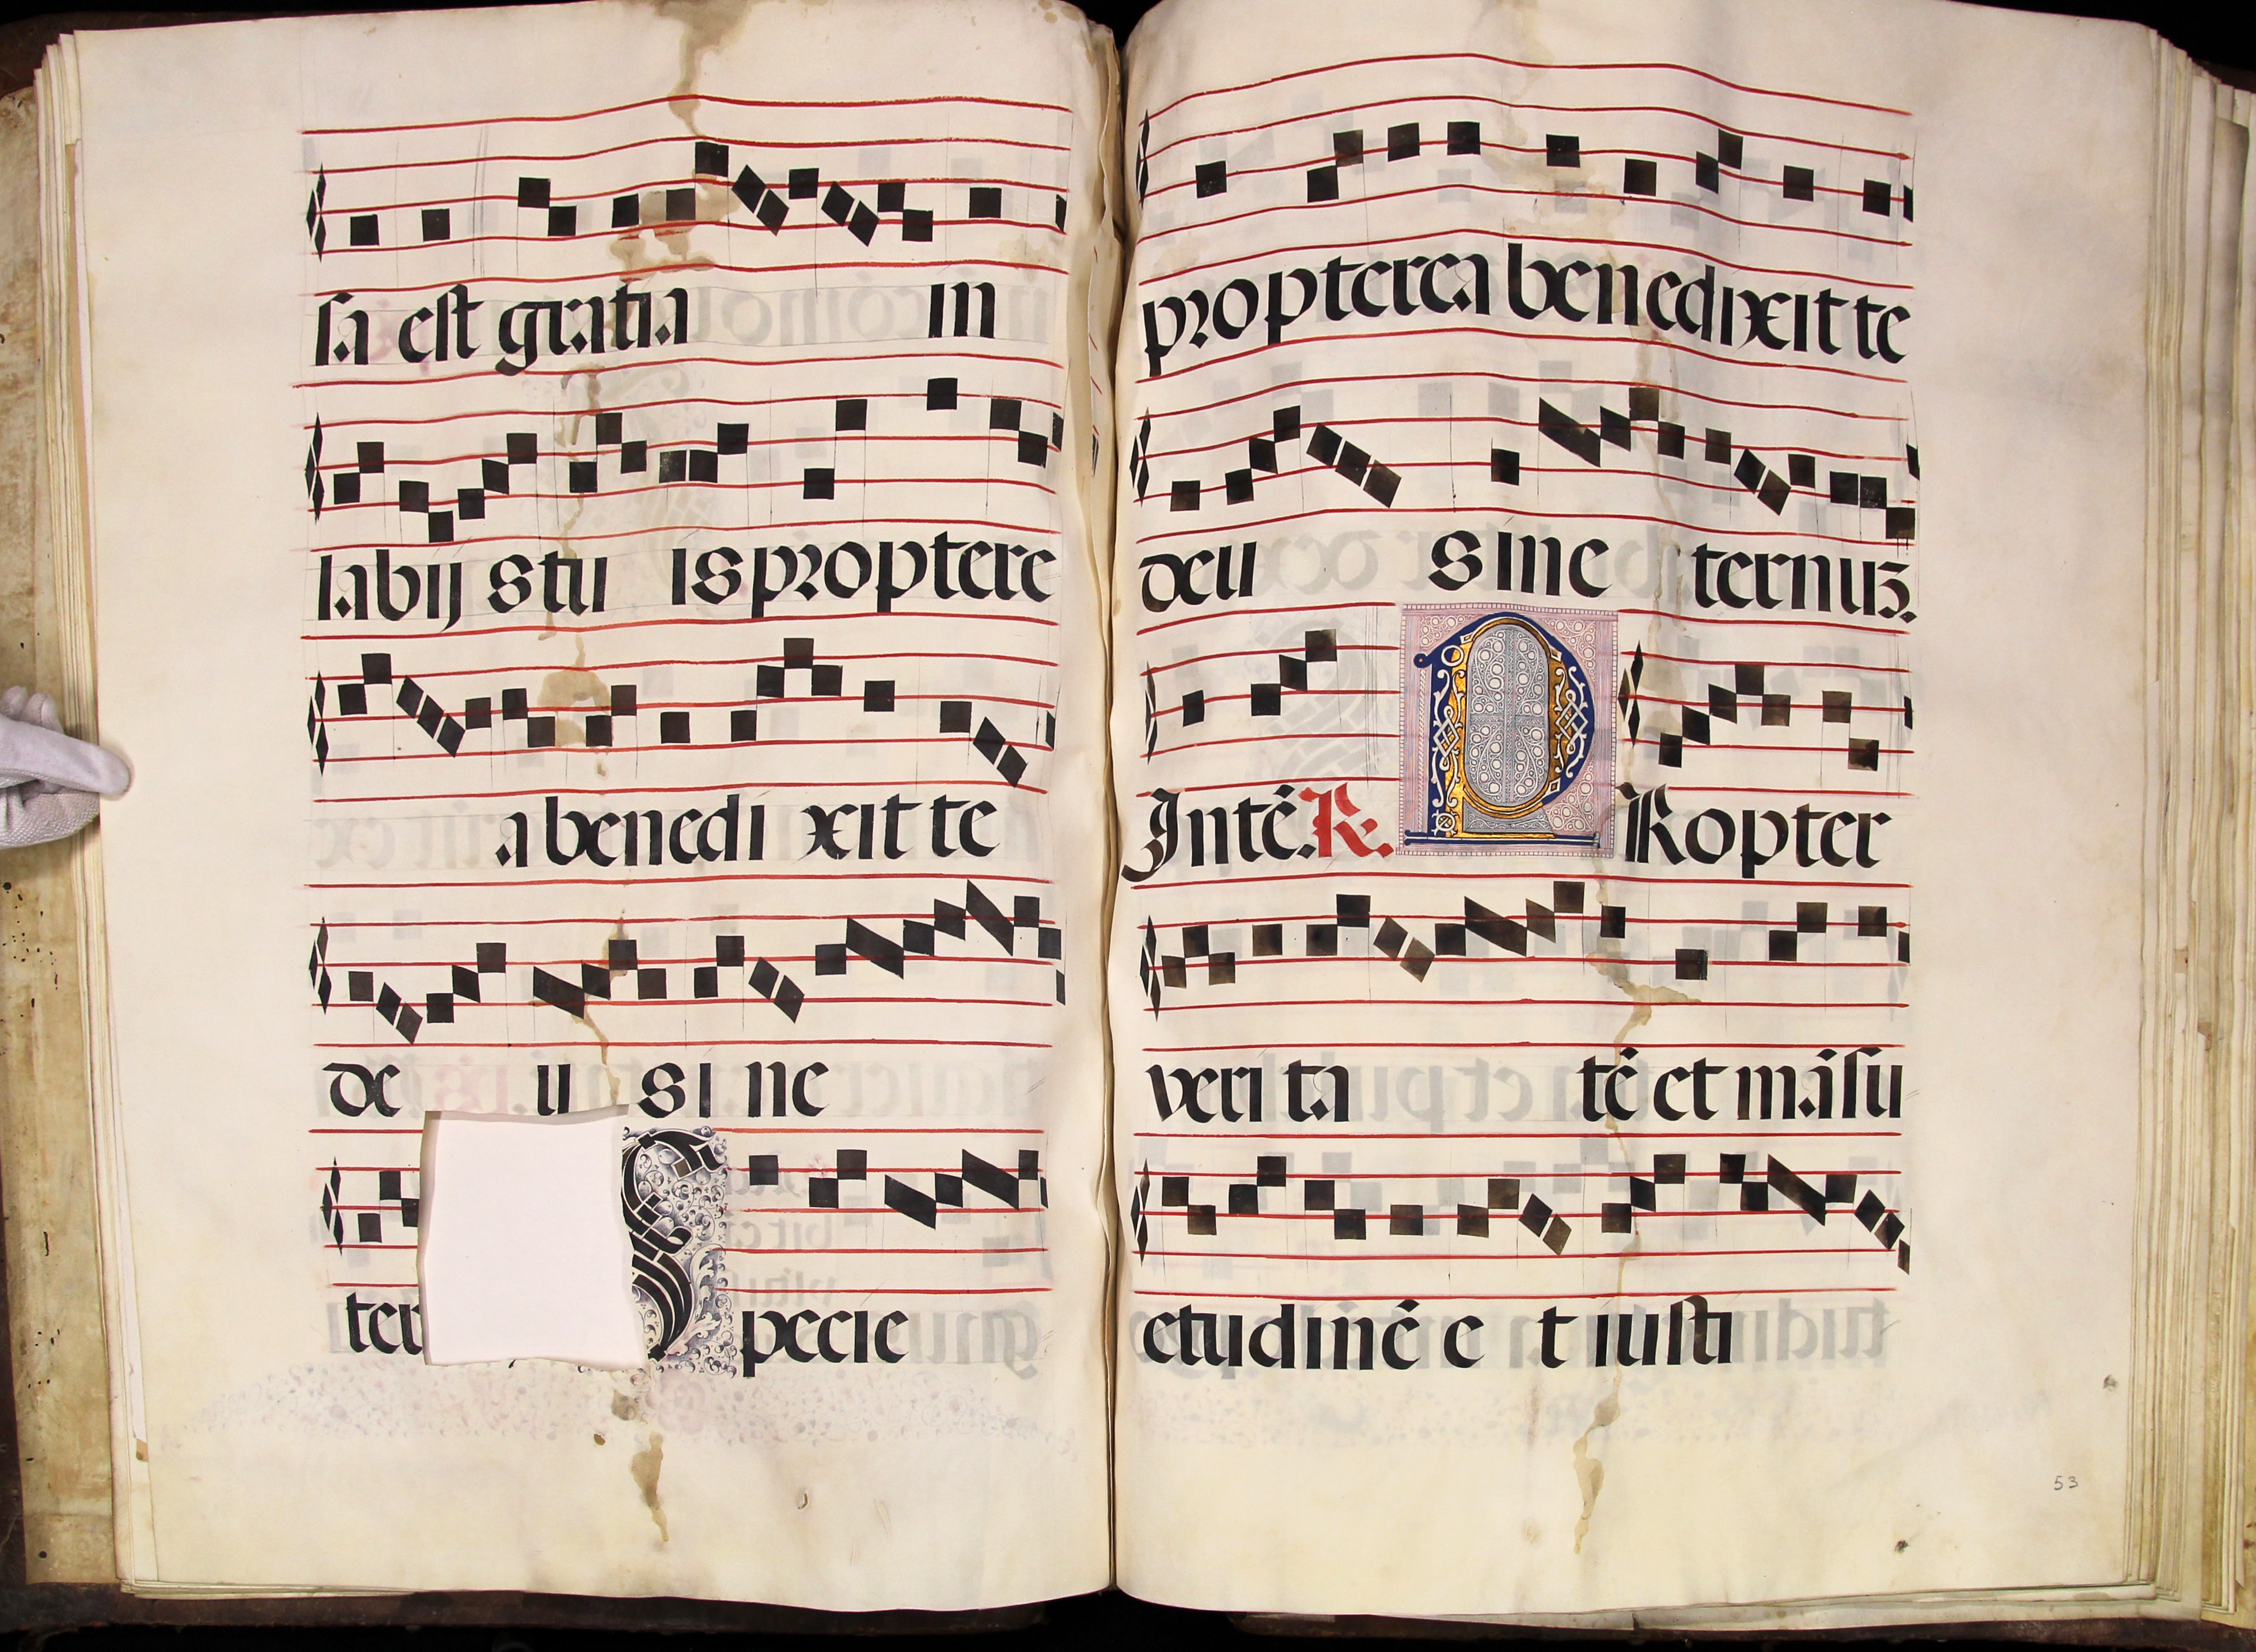 sa est gratia in
labijs tuis proptere
a benedixit te
deus in e
ter Specie
propterea benedixit te
deus in eternuz.
Intē. R. PRopter
veritatē et māsu
etudinē et iusti
53